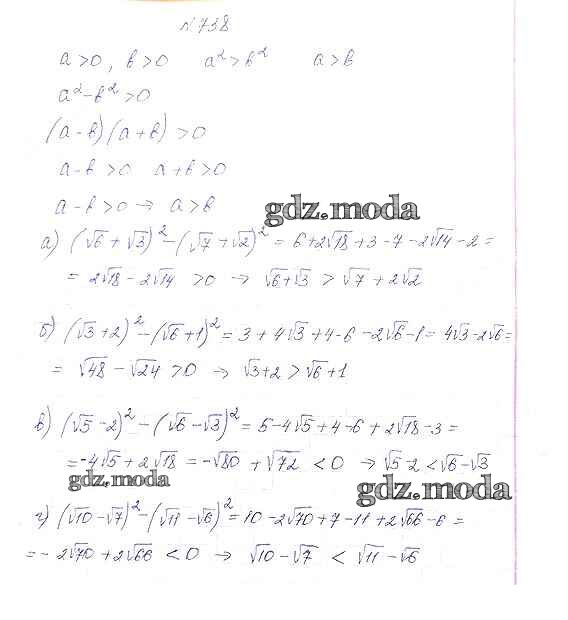 №738
a>0, b>0 a²>b² a>b
a²-b²>0
(a-b)(a+b)>0
a-b>0 a+b>0
a-b>0 → a>b
gdz.moda
а) (√6+√3)²-(√7+√2)²=6+2√18+3-7-2√14-2=
=2√18-2√14 >0 → √6+√3 > √7+2√2
б) (√3+2)²-(√6+1)²=3+4√3+4-6-2√6-1=4√3-2√6=
=√48-√24>0 → √3+2>√6+1
в) (√5-2)²-(√6-√3)²=5-4√5+4-6+2√18-3=
=-4√5+2√18=-√80+√72<0 → √5-2<√6-√3
gdz.moda
gdz.moda
г) (√10-√7)²-(√11-√6)²=10-2√70+7-11+2√66-6=
=-2√70+2√66<0 → √10-√7 < √11-√6